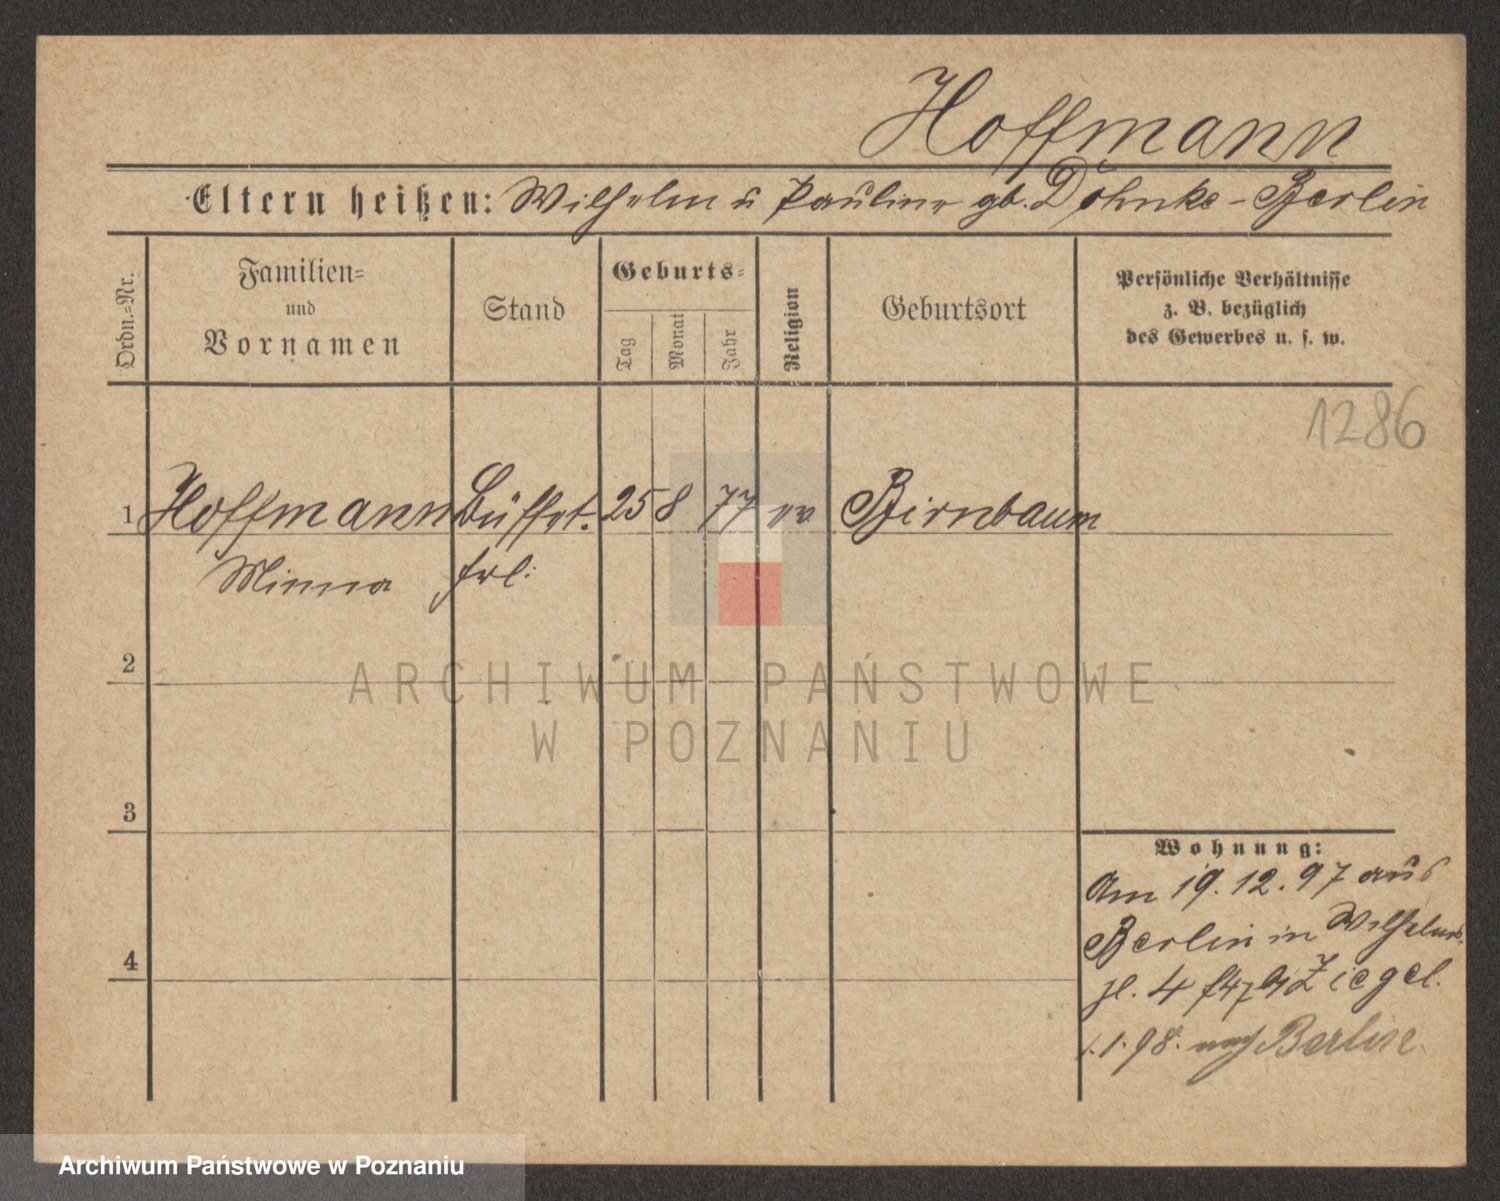 Hoffmann
Eltern heißen: Wilhelm u Pauline gb. Döhnke - Berlin
Ordn.=Nr.
Familien=
und
Vornamen
Stand
Geburts=
Tag
Monat
Jahr
Religion
Geburtsort
Persönliche Verhältnisse
z. B. bezüglich
des Gewerbes u. s. w.
1286
1 Hoffmann Büffet. 25 8 77 ev Birnbaum
Minna frl:
2
ARCHIWUM PAŃSTWOWE
W POZNANIU
3
Wohnung:
Am 19. 12. 97 aus
Berlin in Wilhelms
pl. 4 Ziegel.
1. 1. 98. nach Berlin
4
Archiwum Państwowe w Poznaniu